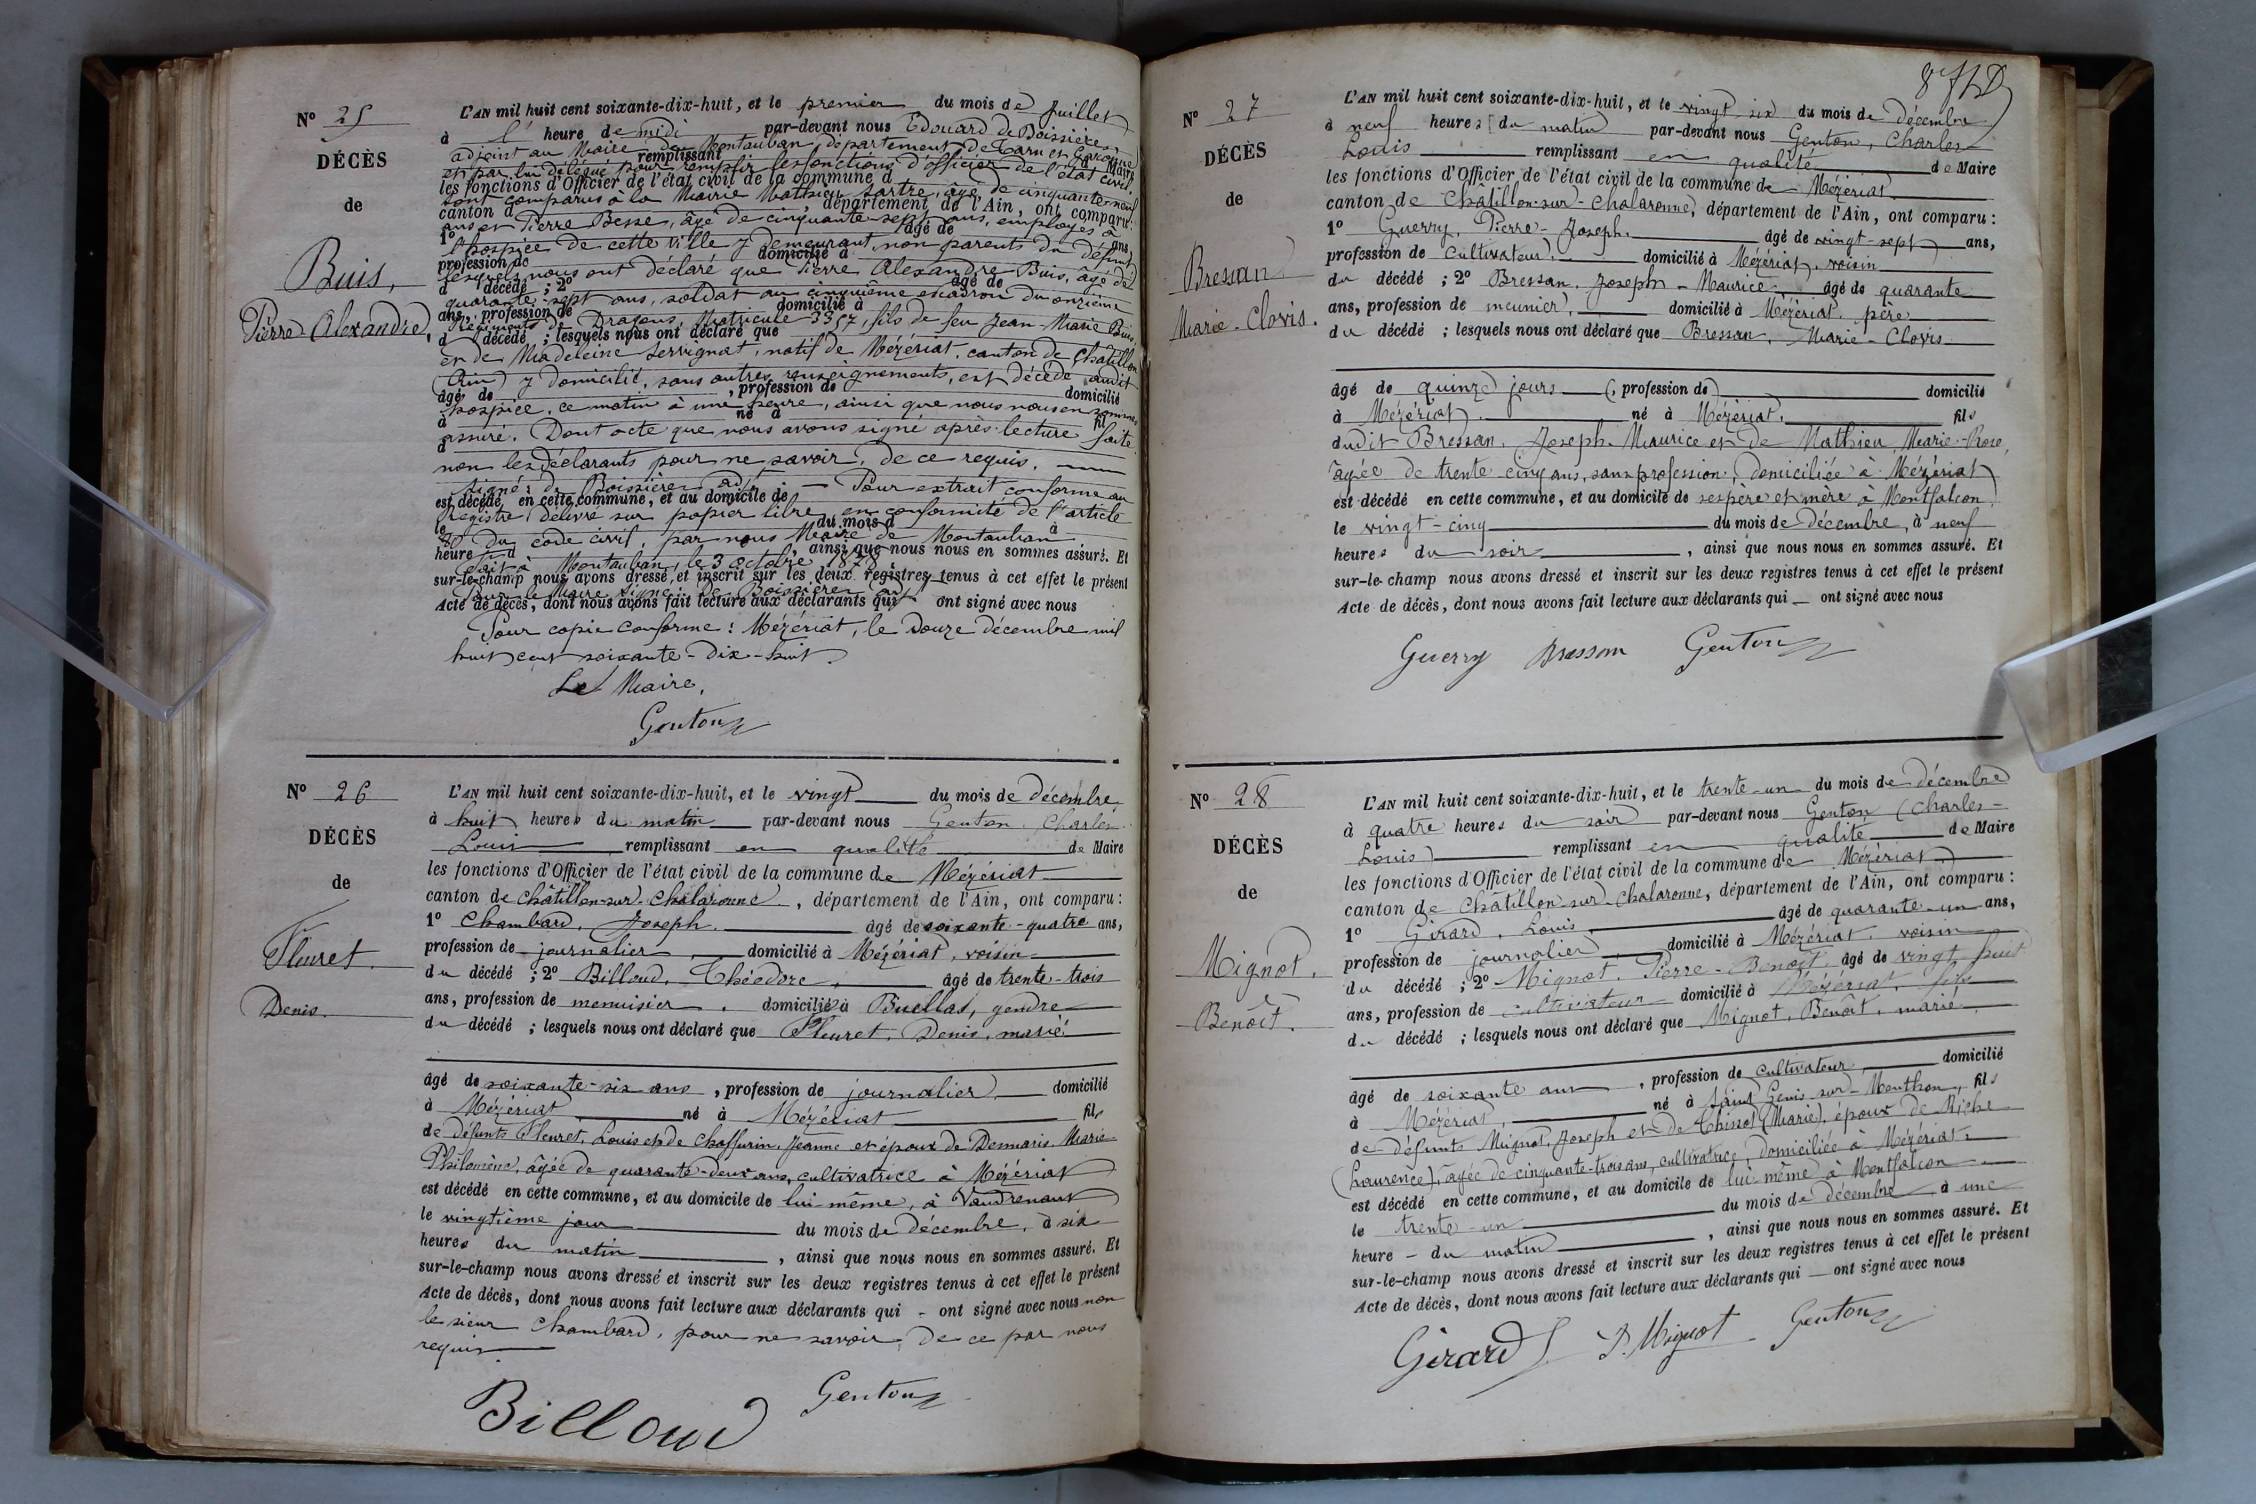 N° 25
DÉCÈS
de
Buis,
Pierre Alexandre,
L'AN mil huit cent soixante-dix-huit, et le premier du mois de Juillet
à l' heure de midi par-devant nous Edouard de Boissière
adjoint au Maire de Montauban, département de Tarn et Garonne
remplissant d Maire
et par lui délégué pour remplir les fonctions d'officier de l'état civil,
les fonctions d'Officier de l'état civil de la commune d
sont comparus à la Mairie Mathieu Sartre, âgé de cinquante-neuf
canton d , département de l'Ain, ont comparu :
ans et Pierre Besse, âgé de cinquante-sept ans, employés à
1° âgé de ans,
l'hospice de cette ville y demeurant, non parents du défunt
profession de domicilié à
lesquels nous ont déclaré que Pierre Alexandre Buis, âgé de
d décédé ; 2° âgé de
quarante-sept ans, soldat au cinquième escadron du onzième
ans, profession de domicilié à
Régiment de Dragons, Matricule 3357, fils de feu Jean-Marie Buis
d décédé ; lesquels nous ont déclaré que
et de Madeleine Servignat, natif de Mézériat, canton de Châtillon
(Ain) y domicilié, sans autres renseignements, est décédé audit
âgé de , profession de domicilié
hospice, ce matin à une heure, ainsi que nous nous en sommes
à né à fil
assuré. Dont acte que nous avons signé après lecture faite
d
non les déclarants pour ne savoir, de ce requis.
signé : de Boissière adj. — Pour extrait conforme au
est décédé en cette commune, et au domicile de
registre délivré sur papier libre, en conformité de l'article
le du mois d à
80 du code civil, par nous Maire de Montauban
heure d , ainsi que nous nous en sommes assuré. Et
Fait à Montauban, le 3 octobre 1878
sur-le-champ nous avons dressé et inscrit sur les deux registres tenus à cet effet le présent
Pour le Maire signé : de Boissière adj
Acte de décès, dont nous avons fait lecture aux déclarants qui ont signé avec nous
Pour copie conforme : Mézériat, le Douze décembre mil
huit cent soixante-dix-huit.
Le Maire,
Genton
N° 26
DÉCÈS
de
Fleuret.
Denis.
L'AN mil huit cent soixante-dix-huit, et le vingt du mois de décembre,
à huit heures du matin par-devant nous Genton, Charles
Louis remplissant en qualité de Maire
les fonctions d'Officier de l'état civil de la commune de Mézériat
canton de Châtillon-sur-Chalaronne, département de l'Ain, ont comparu :
1° Chambard, Joseph. âgé de soixante-quatre ans,
profession de journalier, domicilié à Mézériat, voisin
du décédé ; 2° Billoud, Théodore, âgé de trente-trois
ans, profession de menuisier, domicilié à Buellas, gendre
du décédé ; lesquels nous ont déclaré que Fleuret, Denis, marié
âgé de soixante-six ans, profession de journalier, domicilié
à Mézériat, né à Mézériat fils
de défunts Fleuret, Louis et de Chaffurin, Jeanne et époux de Demaris, Marie
Philomène, âgée de quarante-deux ans, cultivatrice à Mézériat
est décédé en cette commune, et au domicile de lui-même, à Vaudrenaux
le vingtième jour du mois de décembre, à six
heures du matin, ainsi que nous nous en sommes assuré. Et
sur-le-champ nous avons dressé et inscrit sur les deux registres tenus à cet effet le présent
Acte de décès, dont nous avons fait lecture aux déclarants qui - ont signé avec nous non
le sieur Chambard, pour ne savoir, de ce par nous
requis
Billoud Genton
N° 27
DÉCÈS
de
Bressan
Marie-Clovis.
L'AN mil huit cent soixante-dix-huit, et le vingt six du mois de décembre
à neuf heures du matin par-devant nous Genton, Charles
Louis remplissant en qualité de Maire
les fonctions d'Officier de l'état civil de la commune de Mézériat
canton de Châtillon-sur-Chalaronne, département de l'Ain, ont comparu :
1° Guerry, Pierre-Joseph. âgé de vingt-sept ans,
profession de cultivateur, domicilié à Mézériat, voisin
du décédé ; 2° Bressan, Joseph-Maurice âgé de quarante
ans, profession de meunier, domicilié à Mézériat, père
du décédé ; lesquels nous ont déclaré que Bressan, Marie-Clovis
âgé de quinze jours (, profession de) domicilié
à Mézériat, né à Mézériat, fils
dudit Bressan, Joseph-Maurice et de Mathieu, Marie-Rose,
âgée de trente-cinq ans, sans profession, domiciliée à Mézériat
est décédé en cette commune, et au domicile de ses père et mère à Montfalcon
le vingt-cinq du mois de décembre, à neuf
heures du soir, ainsi que nous nous en sommes assuré. Et
sur-le-champ nous avons dressé et inscrit sur les deux registres tenus à cet effet le présent
Acte de décès, dont nous avons fait lecture aux déclarants qui — ont signé avec nous
Guerry Bressan Genton
N° 28
DÉCÈS
de
Mignot.
Benoît.
L'AN mil huit cent soixante-dix-huit, et le trente-un du mois de décembre
à quatre heures du soir par-devant nous Genton (Charles-
Louis) remplissant en qualité de Maire
les fonctions d'Officier de l'état civil de la commune de Mézériat
canton de Châtillon sur Chalaronne, département de l'Ain, ont comparu :
1° Girard, Louis, âgé de quarante-un ans,
profession de journalier domicilié à Mézériat, voisin
du décédé ; 2° Mignot, Pierre-Benoît, âgé de vingt huit
ans, profession de cultivateur domicilié à Mézériat, fils
du décédé ; lesquels nous ont déclaré que Mignot, Benoît, marié
âgé de soixante ans, profession de cultivateur, domicilié
à Mézériat, né à Saint Genis sur Menthon, fils
de défunts Mignot, Joseph et de Chinot (Marie), époux de Riche
(Laurence), âgée de cinquante-trois ans, cultivatrice, domiciliée à Mézériat.
est décédé en cette commune, et au domicile de lui-même à Montfalcon
le trente-un du mois de décembre à une
heure - du matin, ainsi que nous nous en sommes assuré. Et
sur-le-champ nous avons dressé et inscrit sur les deux registres tenus à cet effet le présent
Acte de décès, dont nous avons fait lecture aux déclarants qui — ont signé avec nous
Girard P. Mignot Genton